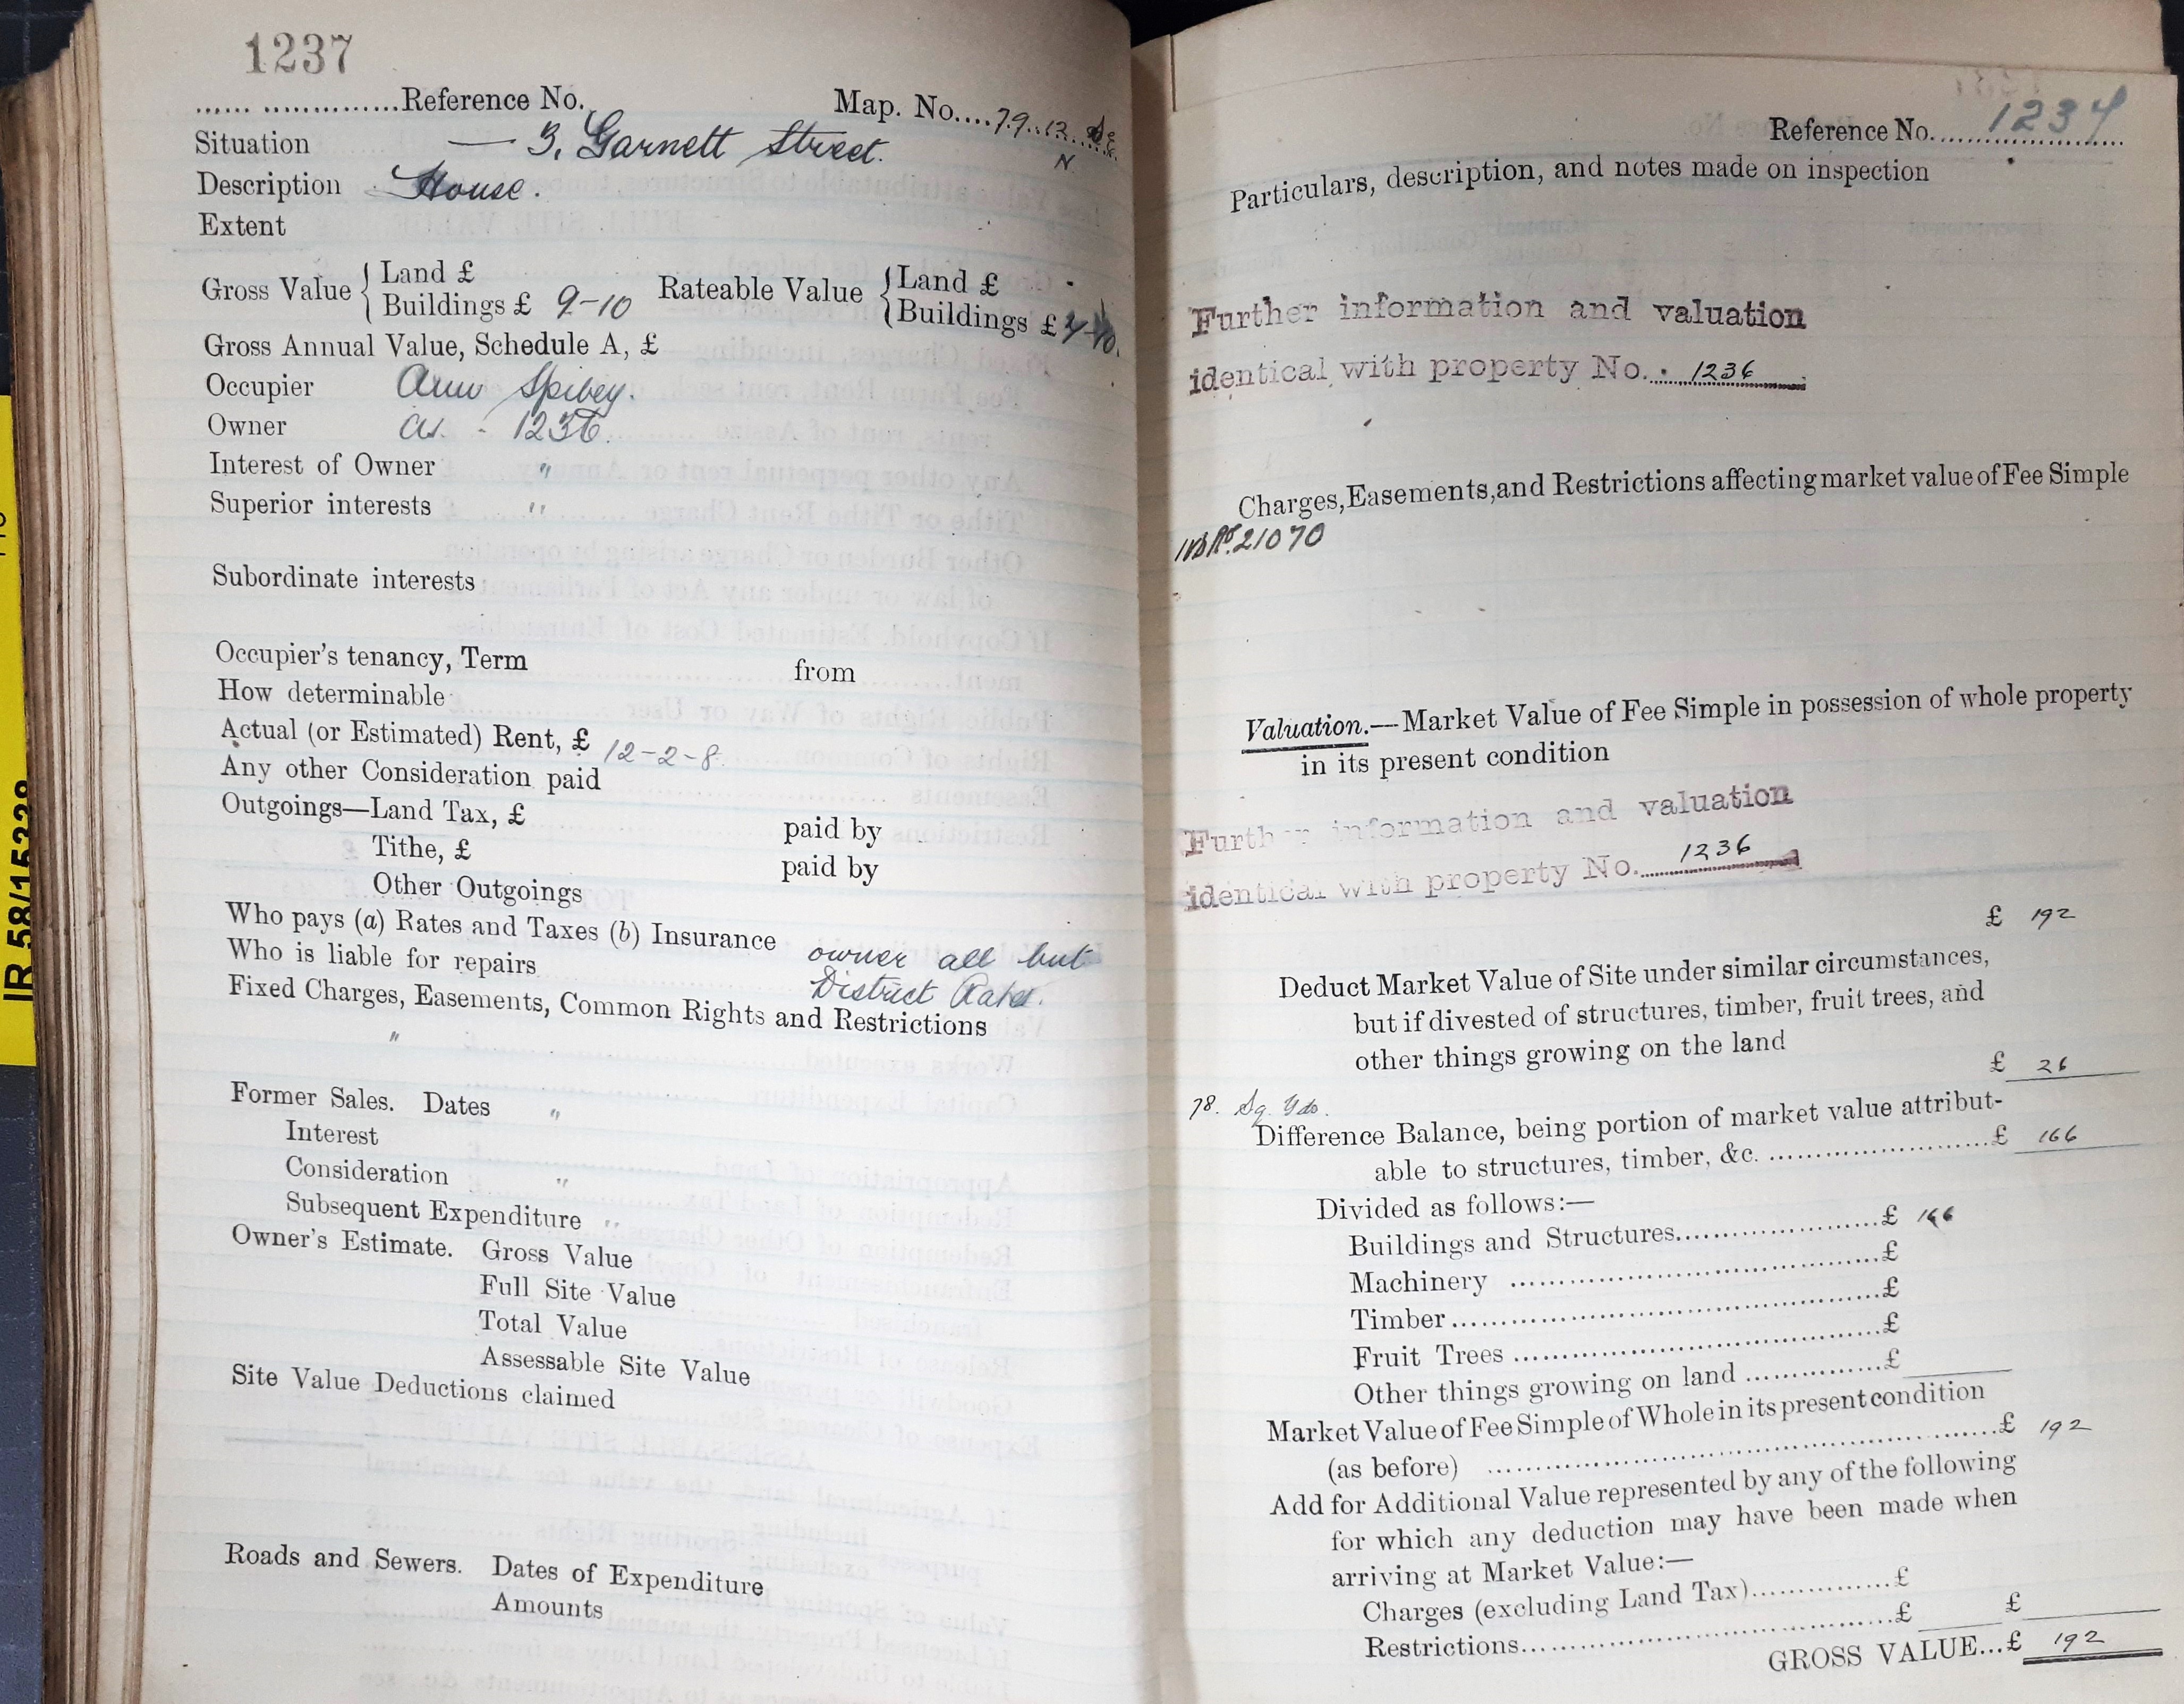 1237
...... ...............Reference No.
Map. No....79..12.
N
Situation — 3, Garnett Street.
Description House.
Extent
Gross Value { Land £
Buildings £ 9-10
Rateable Value { Land £
Buildings £
Gross Annual Value, Schedule A, £
Occupier Ann Spibey.
Owner as - 1236.
Interest of Owner "
Superior interests "
Subordinate interests
Occupier's tenancy, Term from
How determinable
Actual (or Estimated) Rent, £ 12-2-8.
Any other Consideration paid
Outgoings—Land Tax, £ paid by
Tithe, £ paid by
Other Outgoings
Who pays (a) Rates and Taxes (b) Insurance owner all but
Who is liable for repairs District Rates.
Fixed Charges, Easements, Common Rights and Restrictions
"
Former Sales. Dates "
Interest
Consideration "
Subsequent Expenditure "
Owner's Estimate. Gross Value
Full Site Value
Total Value
Assessable Site Value
Site Value Deductions claimed
Roads and Sewers. Dates of Expenditure
Amounts
IR 58/15328
Reference No. 1237
Particulars, description, and notes made on inspection
Further information and valuation
identical with property No. 1236
Charges, Easements, and Restrictions affecting market value of Fee Simple
21070
Valuation.—Market Value of Fee Simple in possession of whole property
in its present condition
Further information and valuation
identical with property No. 1236
£ 192
Deduct Market Value of Site under similar circumstances,
but if divested of structures, timber, fruit trees, and
other things growing on the land
£ 26
78. Sq. Yds.
Difference Balance, being portion of market value attribut-
able to structures, timber, &c. ........................£ 166
Divided as follows:—
Buildings and Structures......................£ 166
Machinery ........................................£
Timber..............................................£
Fruit Trees .......................................£
Other things growing on land ...............£
Market Value of Fee Simple of Whole in its present condition
(as before) ...............................................£ 192
Add for Additional Value represented by any of the following
for which any deduction may have been made when
arriving at Market Value:—
Charges (excluding Land Tax)................£
Restrictions........................................£ £
GROSS VALUE...£ 192